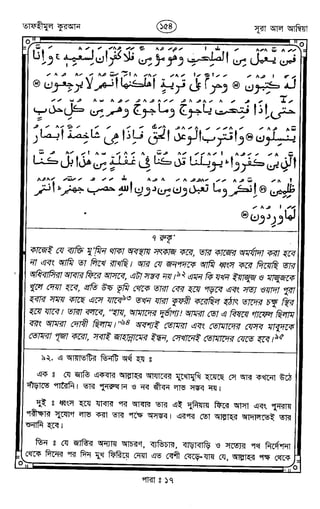 তাফহীমুল কুরআন
১৫৪
সূরা আল আম্বিয়া
فَمَنْ يَّعْمَلْ مِنَ الصّٰلِحٰتِ وَهُوَ مُؤْمِنٌ فَلَا كُفْرَانَ لِسَعْيِهٖ ۚ وَاِنَّا
لَهٗ كٰتِبُوْنَ ۝ وَحَرٰمٌ عَلٰى قَرْيَةٍ اَهْلَكْنٰهَاۤ اَنَّهُمْ لَا يَرْجِعُوْنَ ۝
حَتّٰۤى اِذَا فُتِحَتْ يَاْجُوْجُ وَمَاْجُوْجُ وَهُمْ مِّنْ كُلِّ حَدَبٍ
يَّنْسِلُوْنَ ۝ وَاقْتَرَبَ الْوَعْدُ الْحَقُّ فَاِذَا هِىَ شَاخِصَةٌ اَبْصَارُ
الَّذِيْنَ كَفَرُوْا ؕ يٰوَيْلَنَا قَدْ كُنَّا فِىْ غَفْلَةٍ مِّنْ هٰذَا بَلْ كُنَّا
ظٰلِمِيْنَ ۝ اِنَّكُمْ وَمَا تَعْبُدُوْنَ مِنْ دُوْنِ اللّٰهِ حَصَبُ جَهَنَّمَ ؕ اَنْتُمْ
لَهَا وٰرِدُوْنَ ۝
৭ রুকূ'
কাজেই যে ব্যক্তি মু'মিন থাকা অবস্থায় সৎকাজ করে, তার কাজের অমর্যাদা করা হবে
না এবং আমি তা লিখে রাখছি। আর যে জনপদকে আমি ধ্বংস করে দিয়েছি তার
অধিবাসিরা আবার ফিরে আসবে, এটা সম্ভব নয়।৯২ এমন কি যখন ইয়াজূজ ও মাজূজকে
খুলে দেয়া হবে, প্রতি উচ্চ ভূমি থেকে তারা বের হয়ে পড়বে এবং সত্য ওয়াদা পুরা
হবার সময় কাছে এসে যাবে৯৩ তখন যারা কুফরী করেছিল হঠাৎ তাদের চক্ষু স্থির
হয়ে যাবে। তারা বলবে, "হায়, আমাদের দুর্ভাগ্য! আমরা তো এ বিষয়ে গাফেল ছিলাম
বরং আমরা দোষী ছিলাম।"৯৪ অবশ্যই তোমরা এবং তোমাদের যেসব মাবুদকে
তোমরা পূজা করো, সবাই জাহান্নামের ইন্ধন, সেখানেই তোমাদের যেতে হবে।৯৫
৯২. এ আয়াতটির তিনটি অর্থ হয় ঃ
এক ঃ যে জাতি একবার আল্লাহর আযাবের মুখোমুখি হয়েছে সে আর কখনো উঠে
দাঁড়াতে পারেনি। তার পুনরুত্থান ও নব জীবন লাভ সম্ভব নয়।
দুই ঃ ধ্বংস হয়ে যাবার পর আবার তার এই দুনিয়ায় ফিরে আসা এবং পুনরায়
পরীক্ষার সুযোগ লাভ করা তার পক্ষে অসম্ভব। এরপর তো আল্লাহর আদালতেই তার
শুনানি হবে।
তিন ঃ যে জাতির অন্যায় আচরণ, ব্যভিচার, বাড়াবাড়ি ও সত্যের পথ নির্দেশনা
থেকে দিনের পর দিন মুখ ফিরিয়ে নেয়া এত বেশী বেড়ে-যায় যে, আল্লাহর পক্ষ থেকে
পারা ঃ ১৭